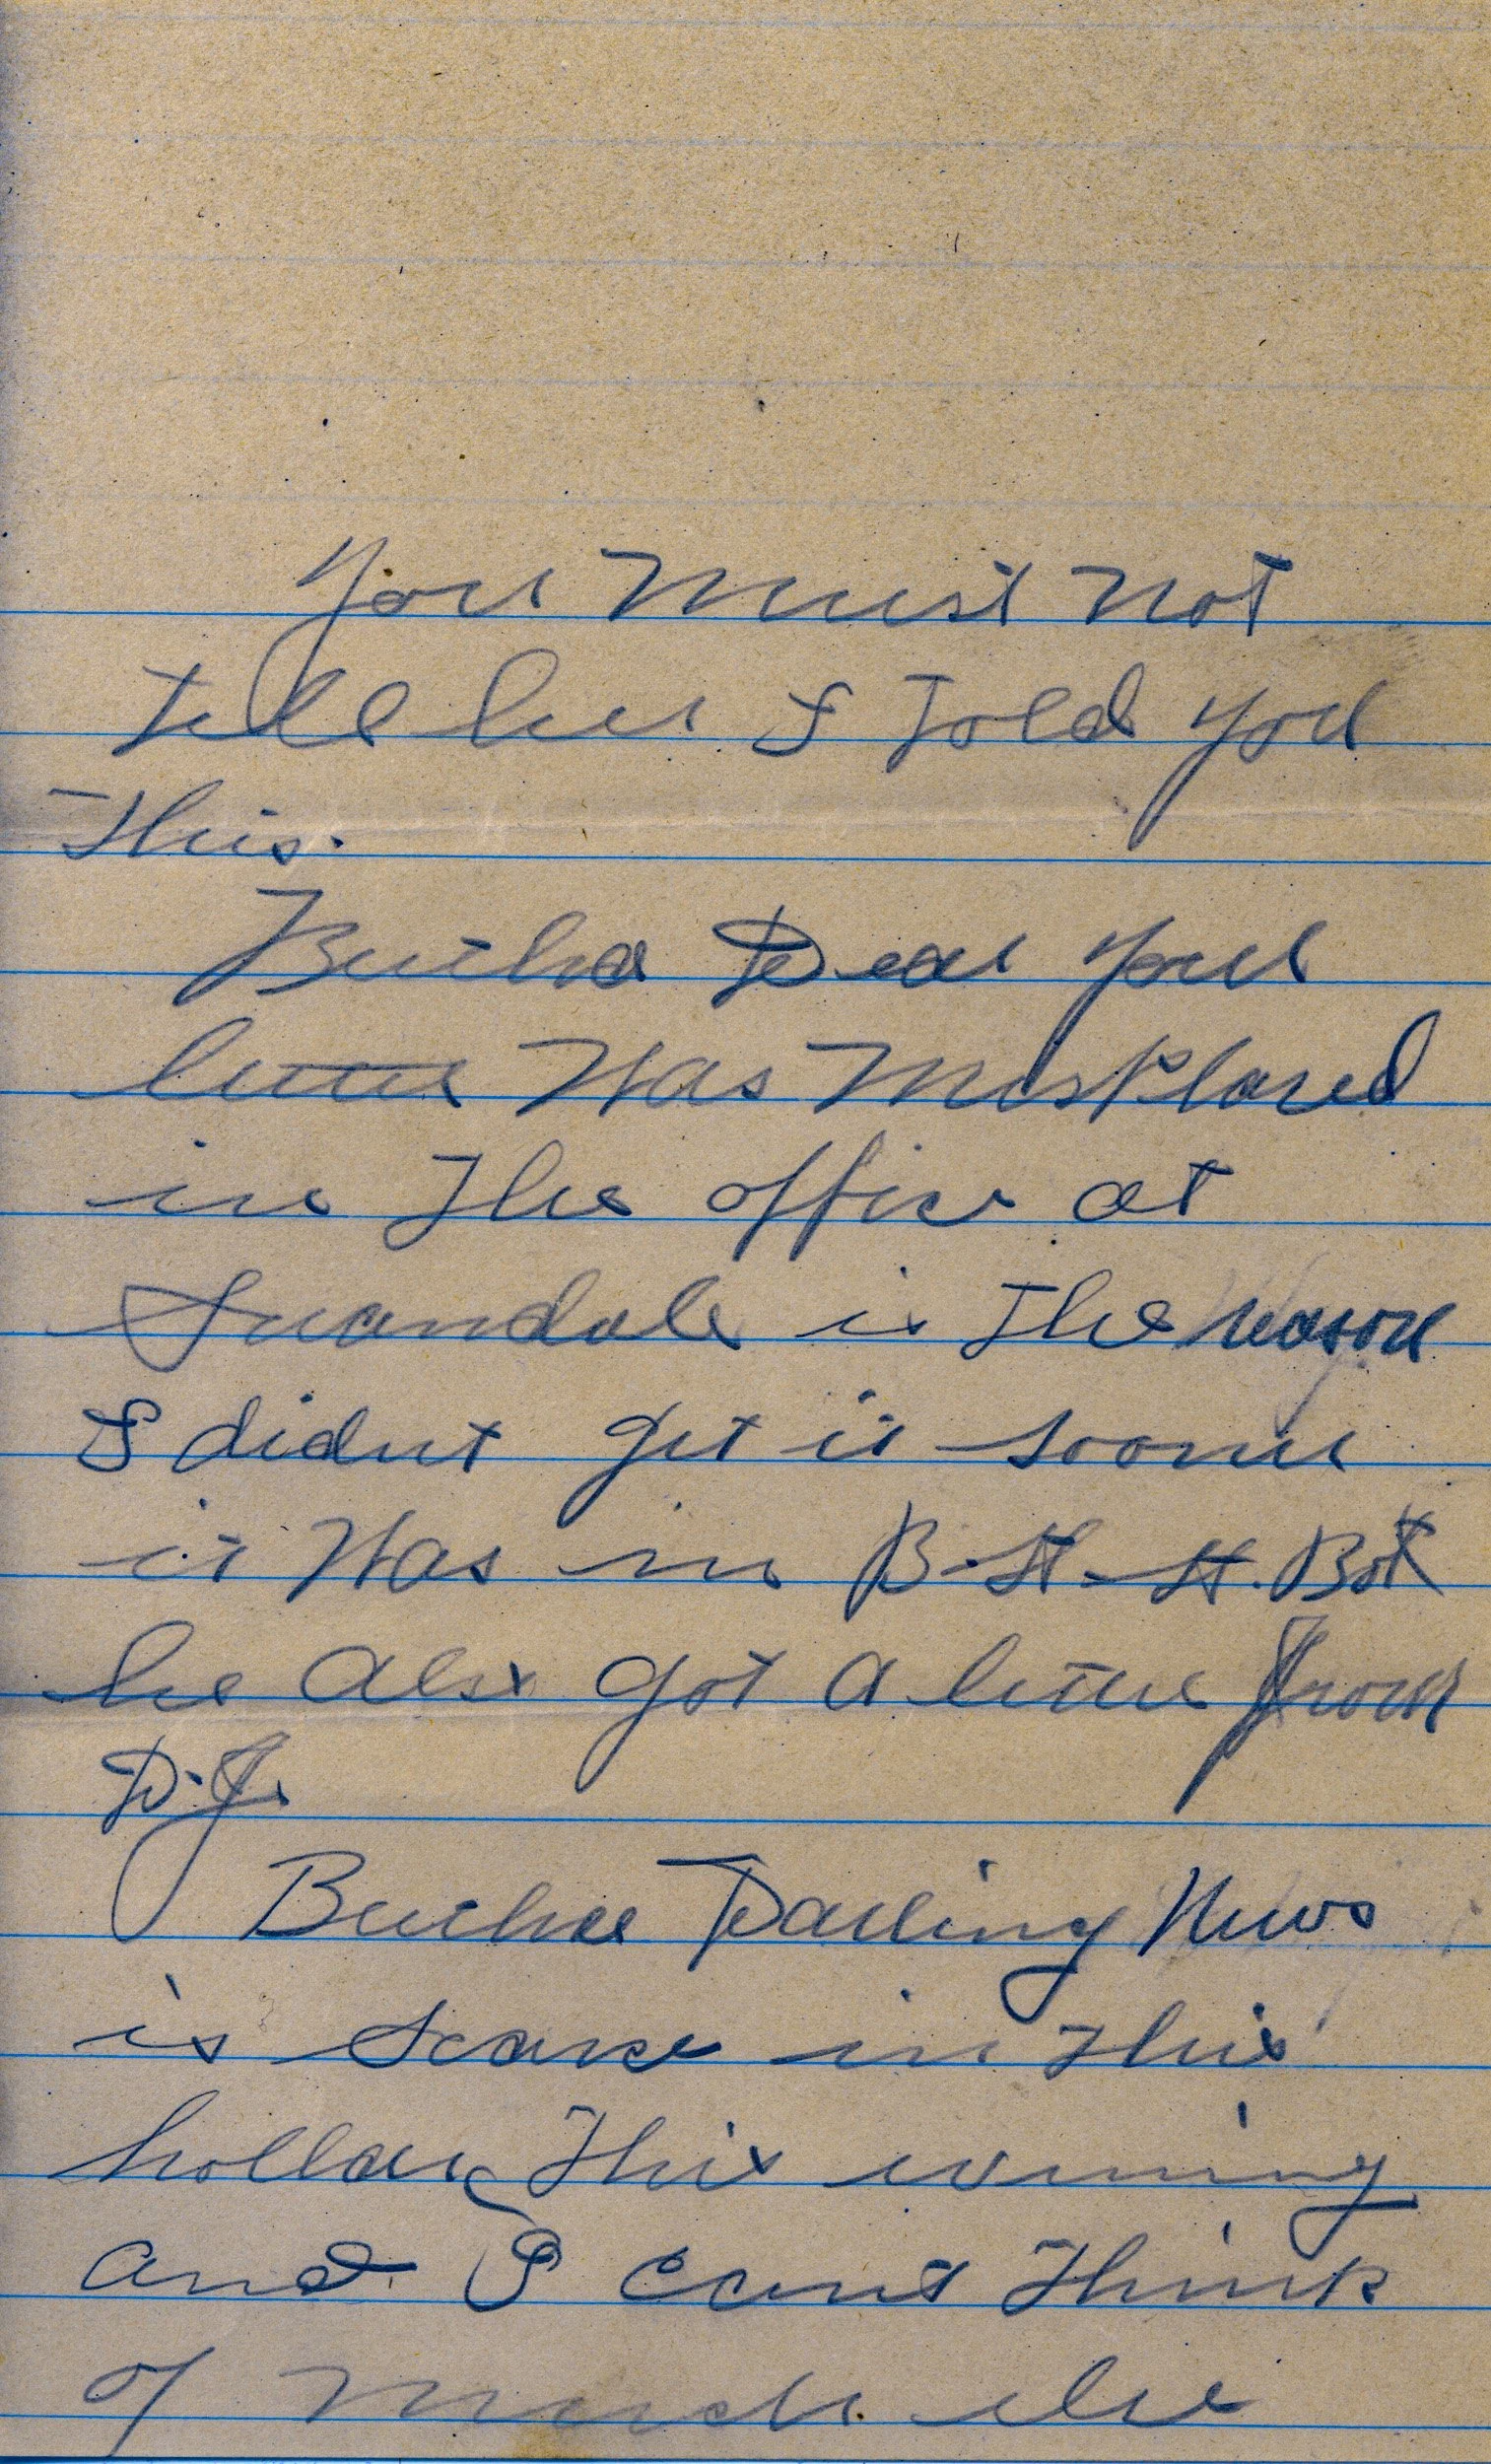 You Must not
tell her I Told you
This.
Burtha Dear your
letter Was MisPlaced
in The office at
is The reason
I didnt get it sooner
it Was in B-H-H. Box
he also got a letter from
D.J.
Burtha Darling News
is scarse in This
hollar This evening
and I cant Think
of much else